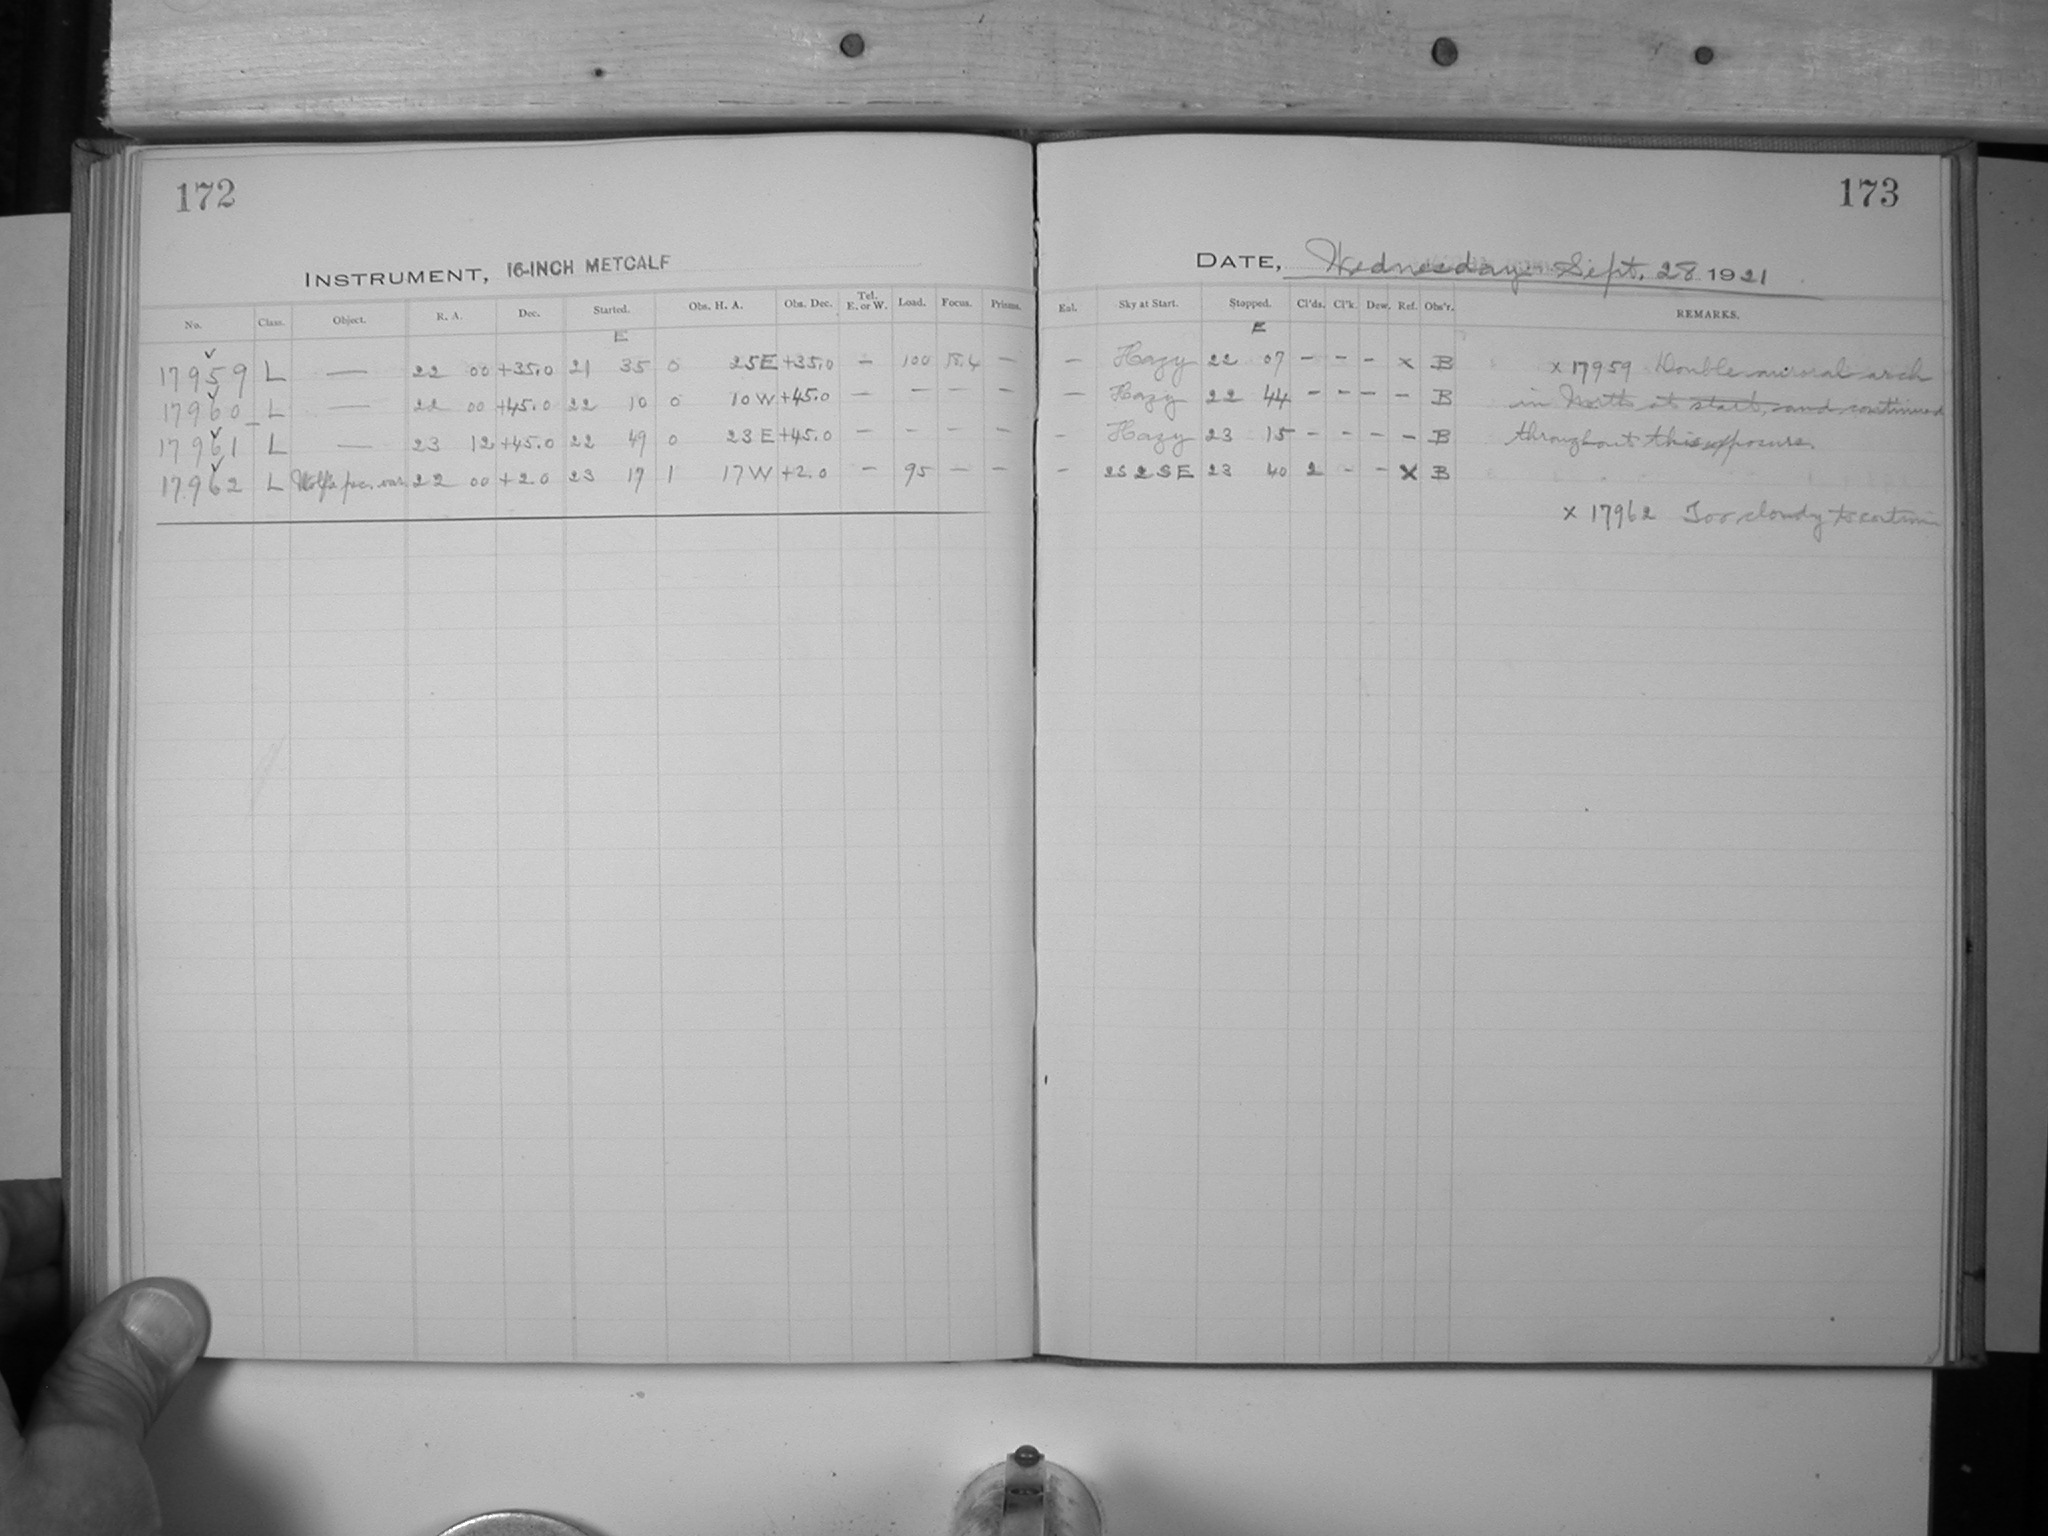 172
INSTRUMENT, 16-INCH METCALF
No. Class. Object. R. A. Dec. Started. Obs. H. A. Obs. Dec. Tel. E. or W. Load. Focus. Prisms.
E
17959 L — 22 00 +35.0 21 35 0 25E +35.0 — 100 —
17960 L — 22 00 +45.0 22 10 0 10W +45.0 — — — —
17961 L — 23 12 +45.0 22 49 0 23E +45.0 — — — —
17962 L Wolf's var. 22 00 +2.0 23 19 1 17W +2.0 — 95 — —
173
DATE, Wednesday Sept. 28 1921
Eal. Sky at Start. Stopped. Cl'ds. Cl'k. Dew. Ref. Obs'r. REMARKS.
E
— Hazy 22 07 — — — x B x 17959 Double auroral arch
— Hazy 22 44 — — — — B in North at start, and continued
— Hazy 23 15 — — — — B throughout this exposure.
— 2S 2 SE 23 40 2 — — X B
x 17962 Too cloudy to continue